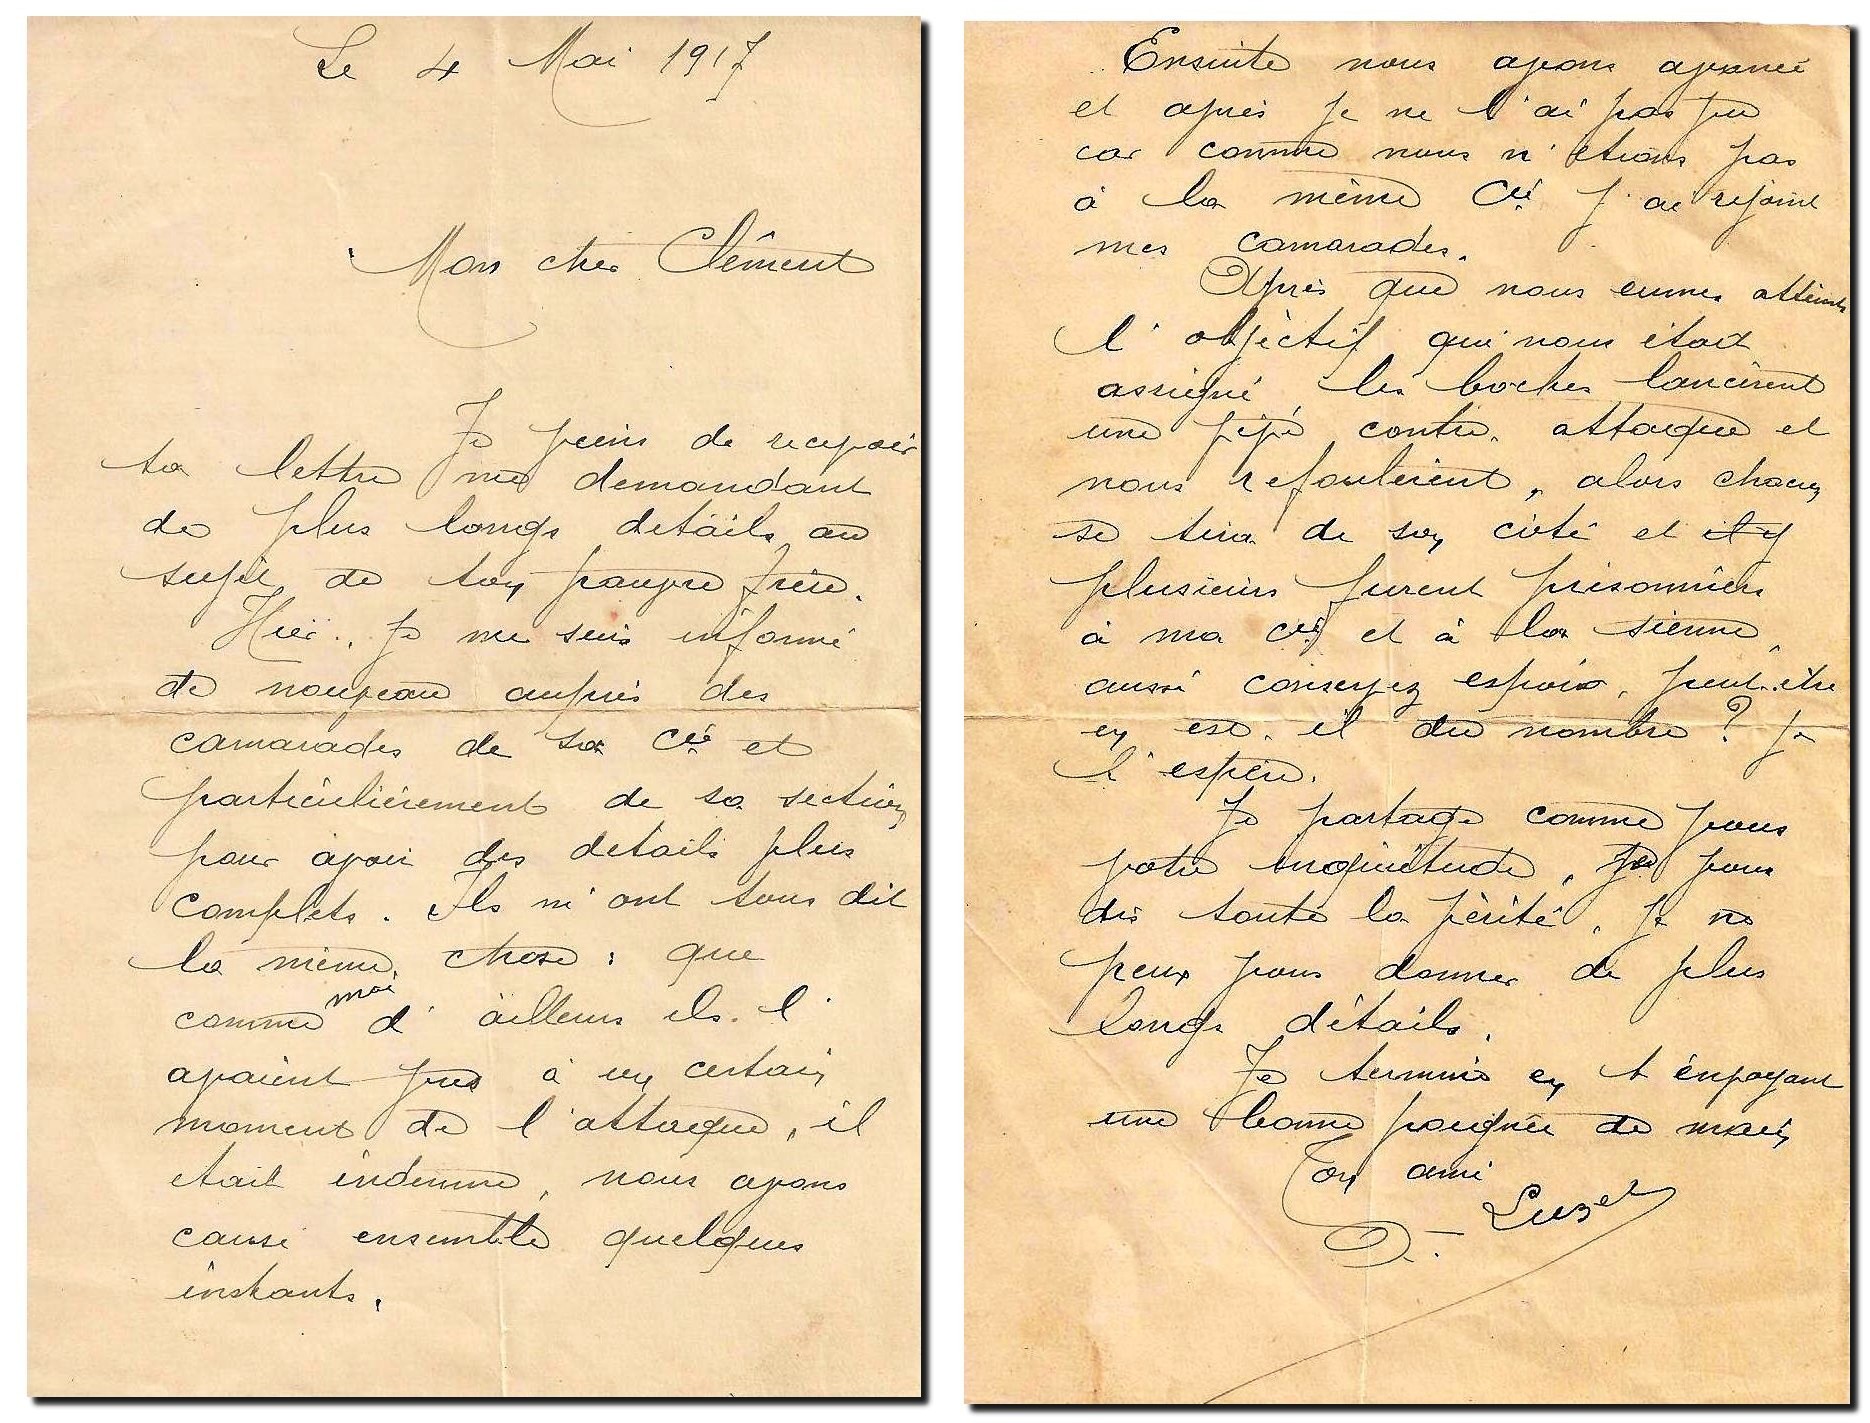 Le 4 Mai 1917
Mon cher Clément
Je viens de recevoir
ta lettre me demandant
de plus longs details au
sujet de ton pauvre frère.
Hier, je me suis informé
de nouveau auprès des
camarades de sa Cie et
particulièrement de sa section
pour avoir des détails plus
complets. Ils m'ont tous dit
la même chose : que
comme moi d'ailleurs ils l'
avaient vu à un certain
moment de l'attaque, il
était indemne, nous avons
causé ensemble quelques
instants.
Ensuite nous avons avancé
et après je ne l'ai pas vu
car comme nous n'étions pas
à la même Cie j'ai rejoint
mes camarades.
Après que nous eumes atteint
l'objectif qui nous était
assigné, les boches lancèrent
une contre-attaque et
nous refoulèrent, alors chacun
se tira de son côté et il y
plusieurs furent prisonniers
à ma Cie et à la sienne,
aussi conservez espoir, peut-être
en est-il du nombre ? Je
l'espère.
Je partage comme vous
votre inquiétude, je vous
dis toute la vérité, je ne
peux vous donner de plus
longs détails.
Je termine en t'envoyant
une bonne poignée de main
Ton ami
Luzet